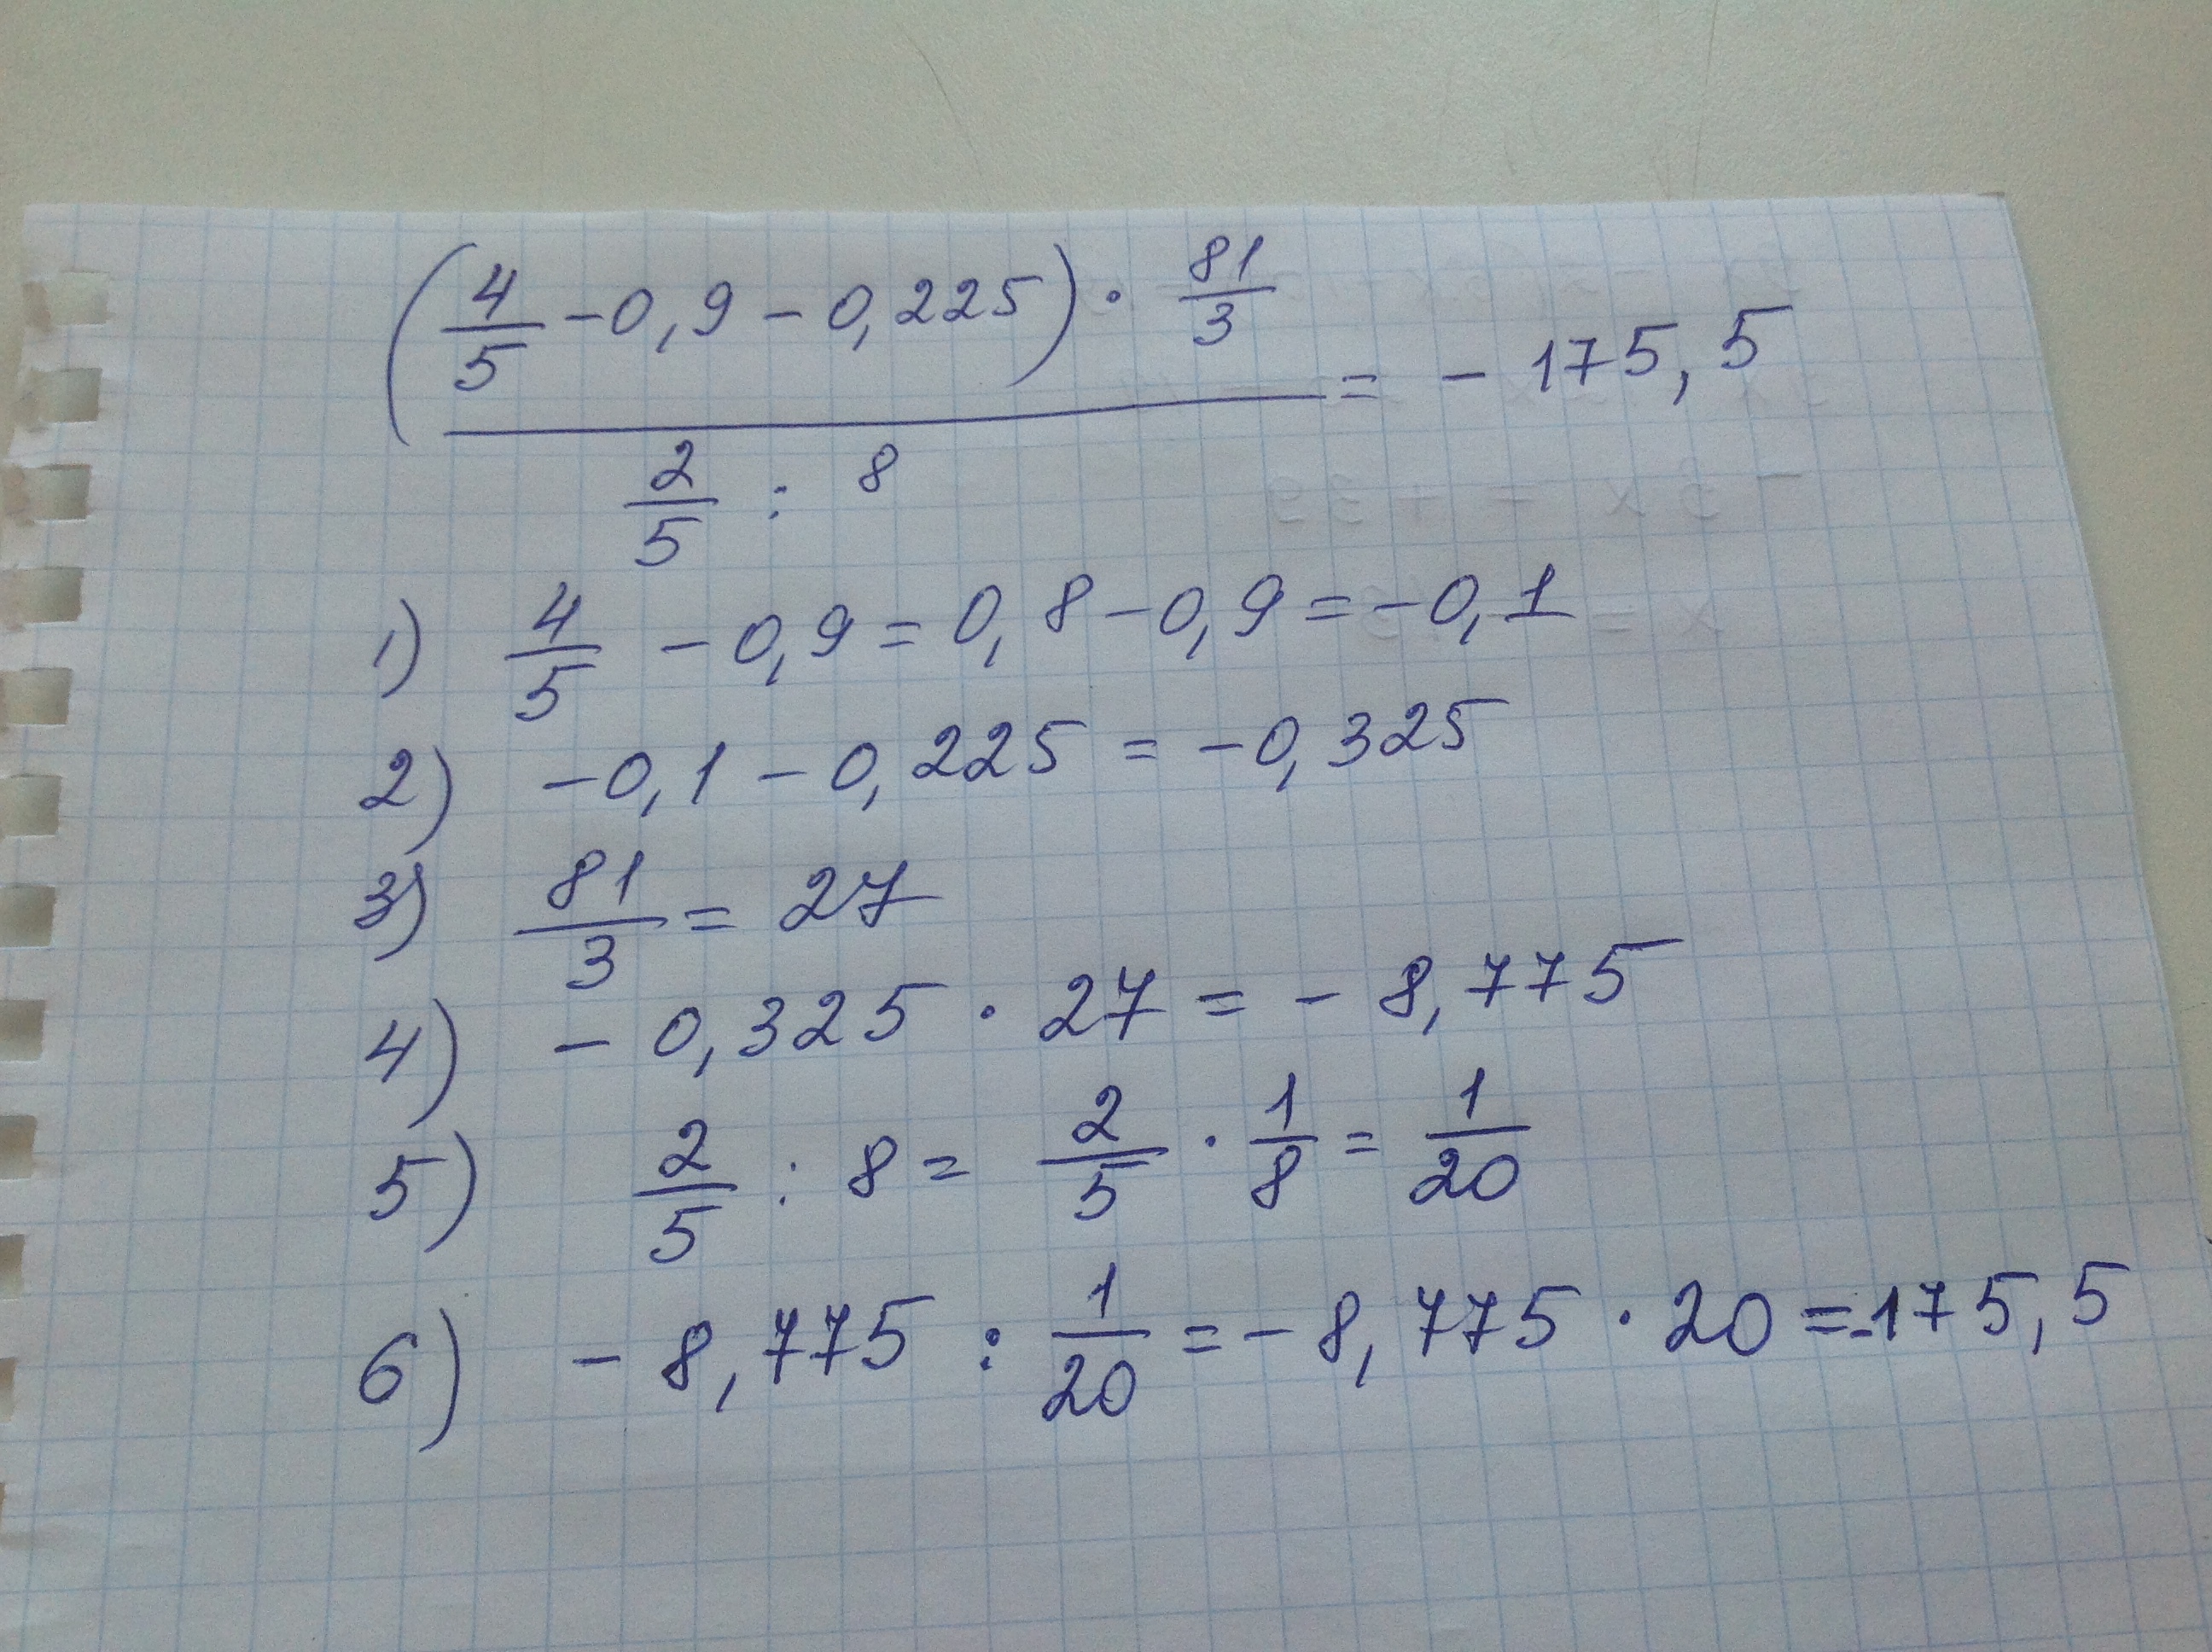 (4/5 - 0,9 - 0,225) · 81/3
= - 175,5
2/5 : 8
1) 4/5 - 0,9 = 0,8 - 0,9 = - 0,1
2) - 0,1 - 0,225 = - 0,325
3) 81/3 = 27
4) - 0,325 · 27 = - 8,775
5) 2/5 : 8 = 2/5 · 1/8 = 1/20
6) - 8,775 : 1/20 = - 8,775 · 20 = -175,5